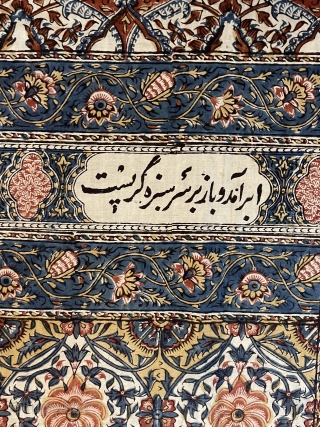 ابر آمد و باز بر سر سبزه گریست